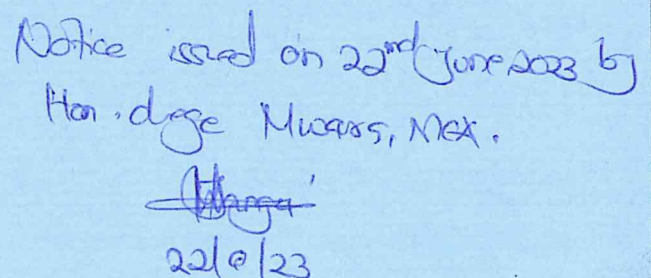 Notice issued on 22nd June 2023 by
Hon. Mwaura, MCA.
22/6/23